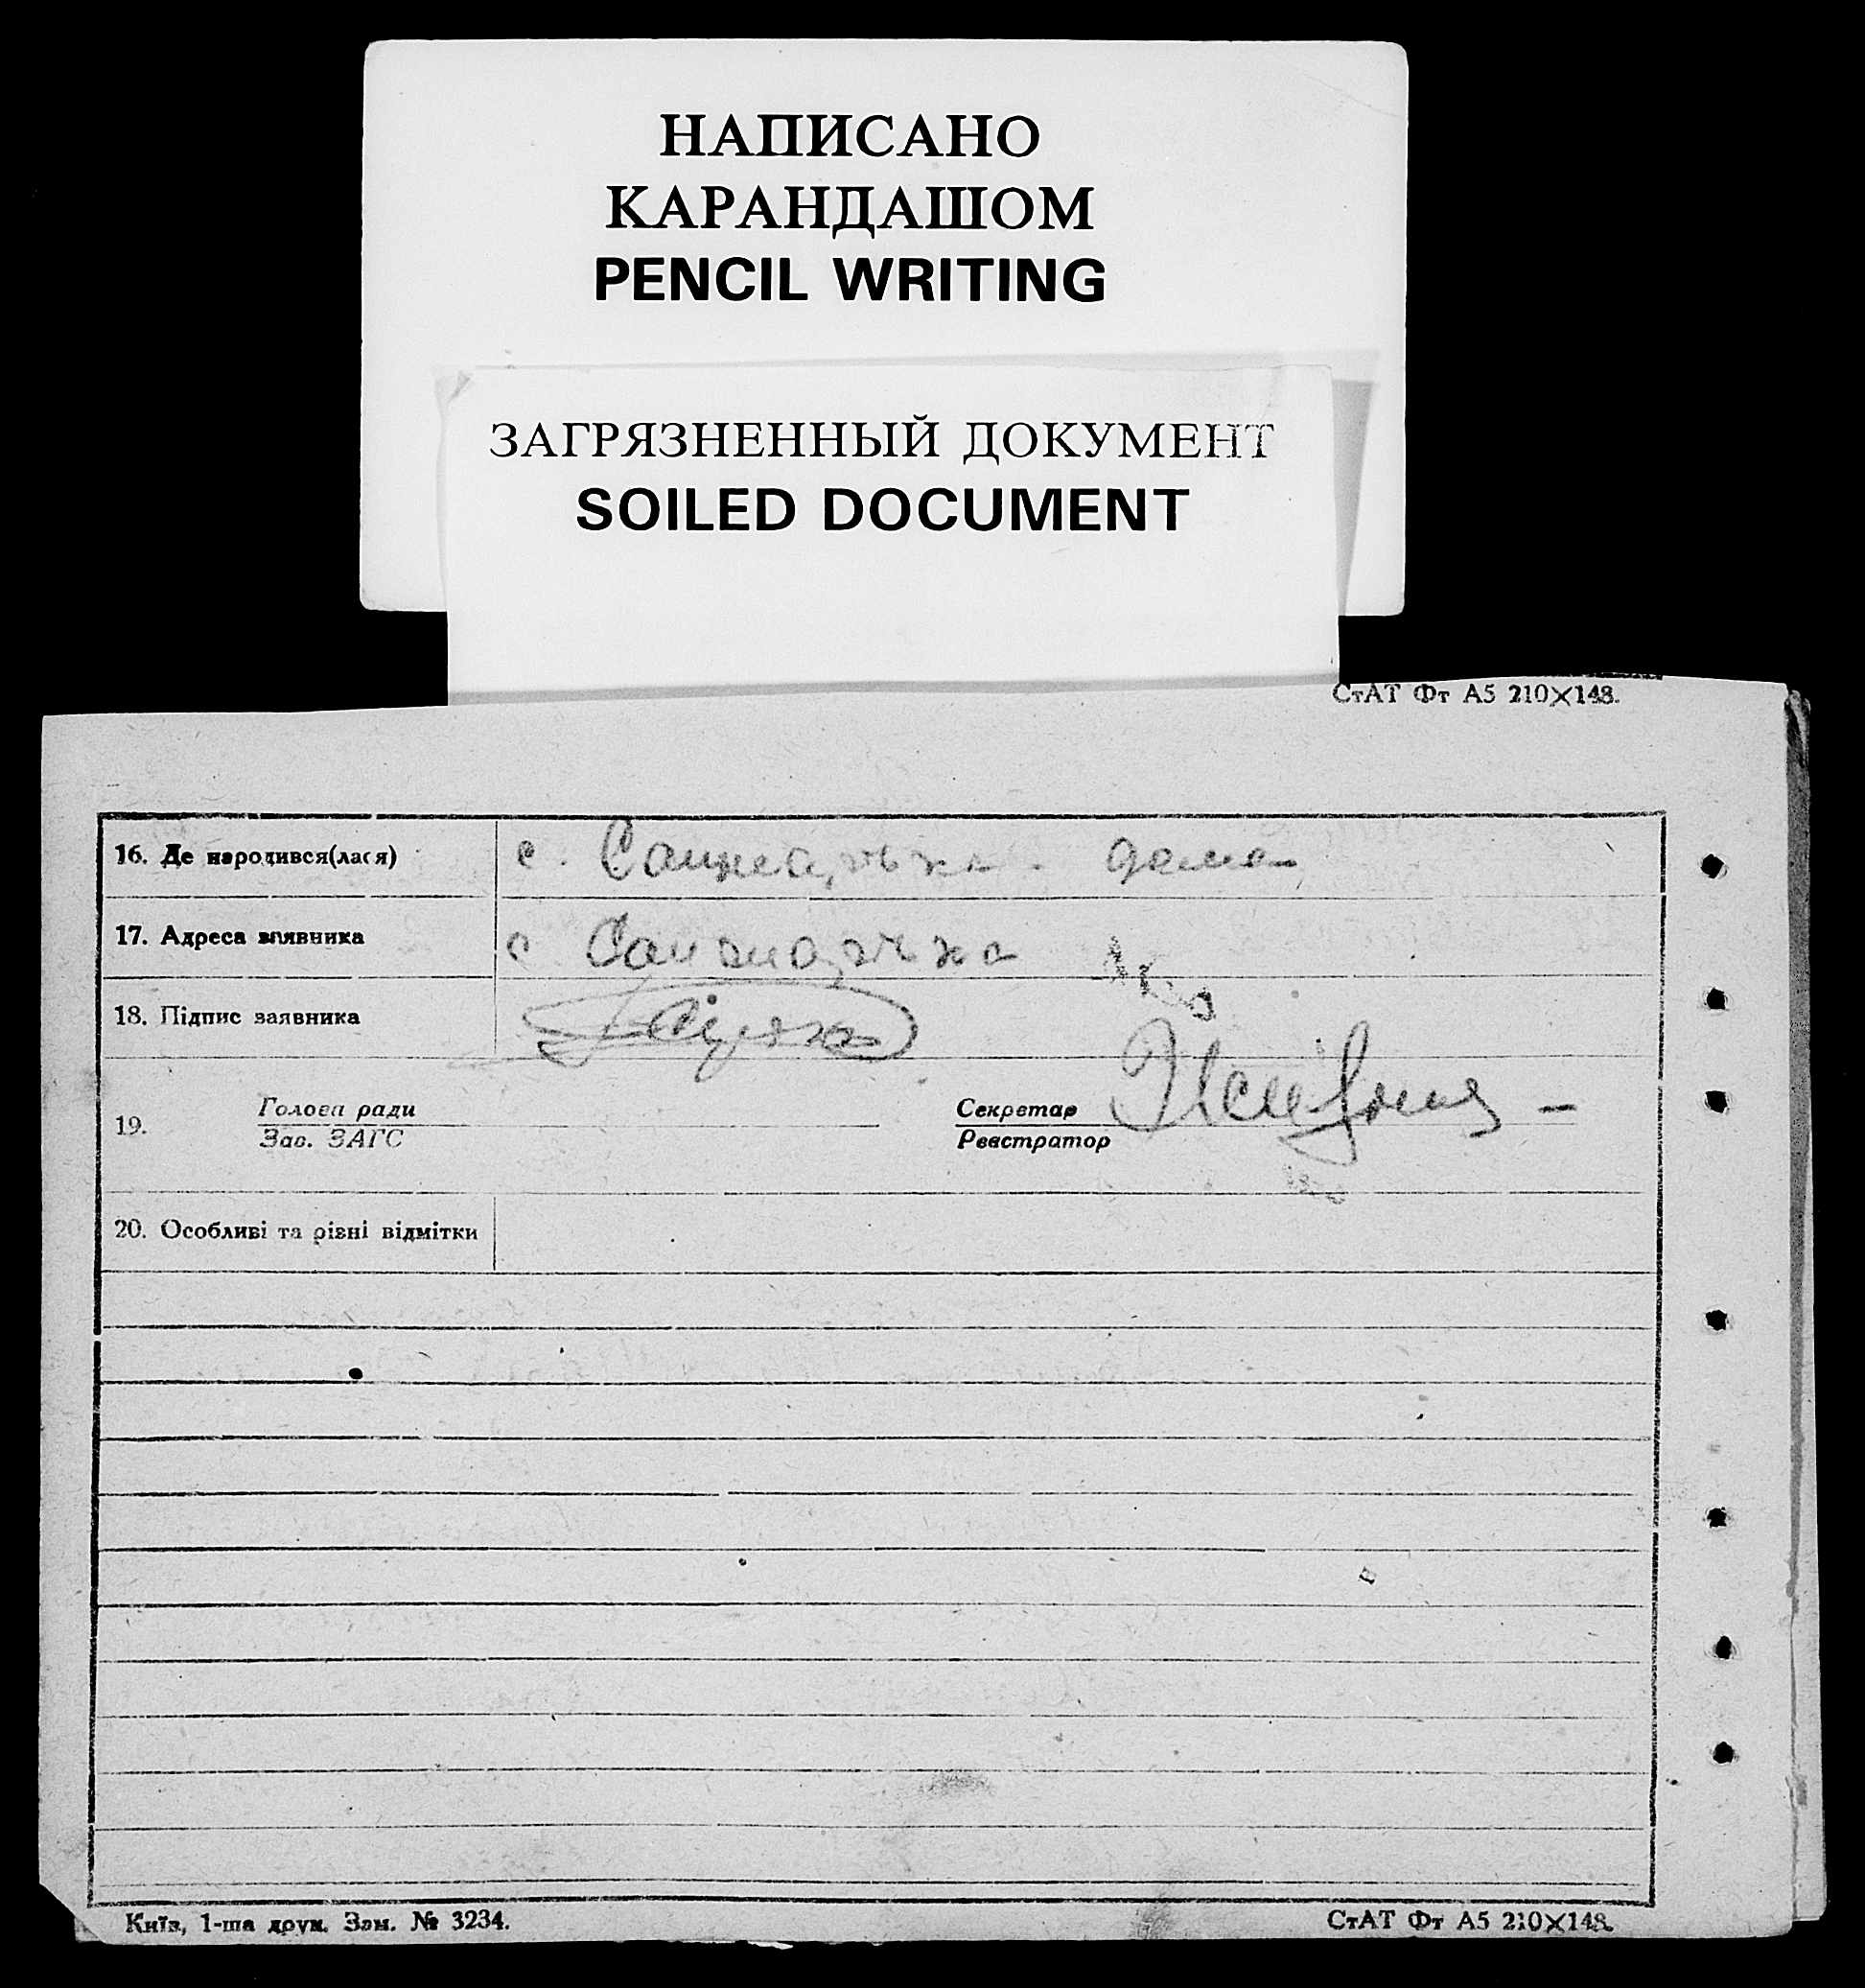 НАПИСАНО
КАРАНДАШОМ
PENCIL WRITING
ЗАГРЯЗНЕННЫЙ ДОКУМЕНТ
SOILED DOCUMENT
СтАТ Фт А5 210×148.
16. Де народився(лася) с. дома
17. Адреса заявника с
18. Підпис заявника
19. Голова ради Секретар
Зав. ЗАГС Реєстратор
20. Особливі та різні відмітки
Київ, 1-ша друк. Зам. № 3234. СтАТ Фт А5 210×148.